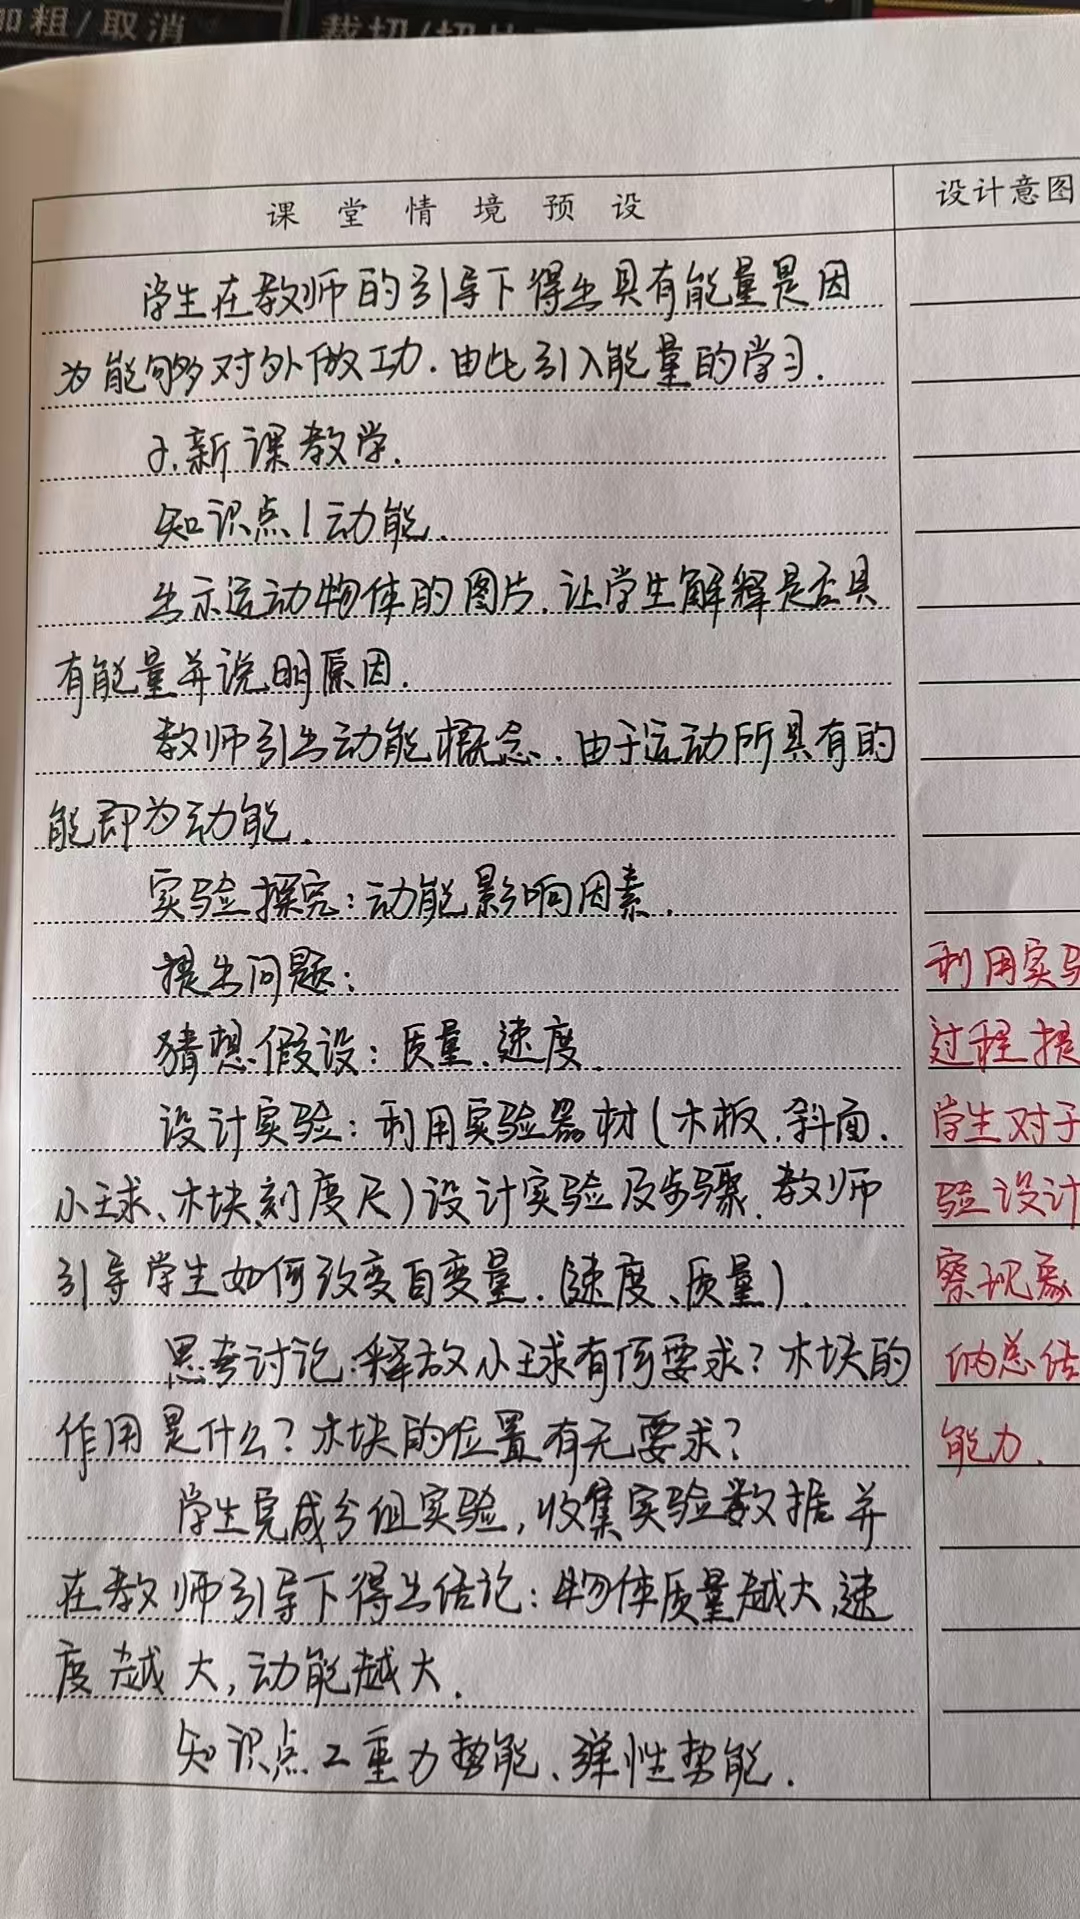 加粗/取消
课堂情境预设
设计意图
学生在教师的引导下得出具有能量是因
为能够对外做功.由此引入能量的学习.
2.新课教学.
知识点1动能.
出示运动物体的图片.让学生解释是否具
有能量并说明原因.
教师引出动能概念.由于运动所具有的
能即为动能.
实验探究:动能影响因素.
提出问题:
猜想假设:质量、速度.
设计实验:利用实验器材(木板.斜面.
小球、木块、刻度尺)设计实验及步骤.教师
引导学生如何改变自变量.(速度、质量).
思考讨论.释放小球有何要求?木块的
作用是什么?木块的位置有无要求?
学生完成分组实验,收集实验数据并
在教师引导下得出结论:物体质量越大,速
度越大,动能越大.
知识点2重力势能、弹性势能.
利用实验
过程提
学生对于
验设计
察现象
纳总结
能力.